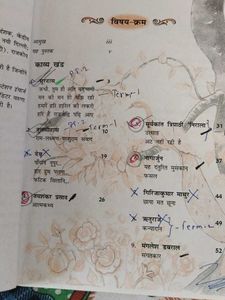 विषय-क्रम
आमुख iii
यह पुस्तक v
काव्य खंड
सूरदास
ऊधौ, तुम हौ अति
मन की मन ही माँझ रही
हमारैं हरि हारिल की लकरी
हरि हैं राजनीति पढ़ि आए
Term-1
Term-1
राम-लक्ष्मण-परशुराम संवाद
10
देव
19
पाँयनि नूपुर,
डार द्रुम
फटिक सिलानि
जयशंकर प्रसाद
आत्मकथ्य
26
सूर्यकांत त्रिपाठी 'निराला'
31
उत्साह
अट नहीं रही है
नागार्जुन
37
यह दंतुरित मुसकान
फसल
गिरिजाकुमार माथुर
44
छाया मत छूना
ऋतुराज
49
कन्यादान
Term-2
9. मंगलेश डबराल
52
संगतकार